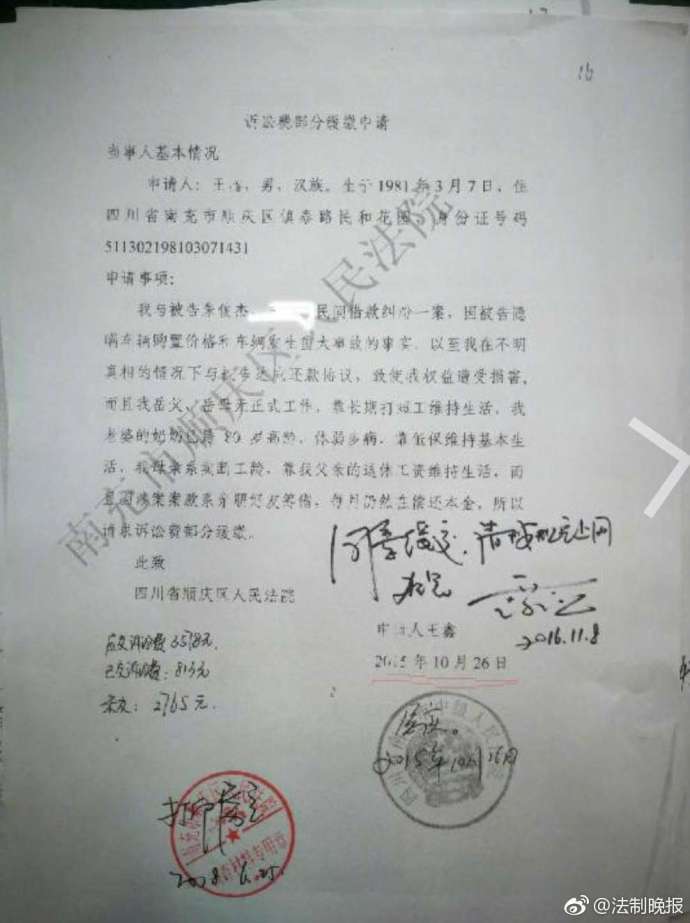 诉讼费部分缓缴申请
当事人基本情况
申请人：王，男，汉族。生于1981年3月7日，住
四川省南充市顺庆区镇泰路民和花园。身份证号码
511302198103071431
申请事项：
我与被告 俊杰、民间借款纠纷一案，因被告隐
瞒车辆购置价格和车辆发生重大事故的事实，以至我在不明
真相的情况下与被告达成还款协议，致使我权益遭受损害，
而且我岳父、岳母无正式工作，靠长期打短工维持生活，我
老婆的奶奶已将80岁高龄，体弱多病，靠低保维持基本生
活，我母亲系买断工龄，靠我父亲的退休工资维持生活，而
且因涉案案款系 筹借，每月仍然在偿还本金，所以
请求诉讼费部分缓缴。
此致
四川省顺庆区人民法院
同意缓交，
申请人王鑫
2016.11.8
2015年10月26日
应交诉讼费
已交诉讼费：813元
2765元.
2015年10月26日
南充市顺庆区人民法院
@法制晚报